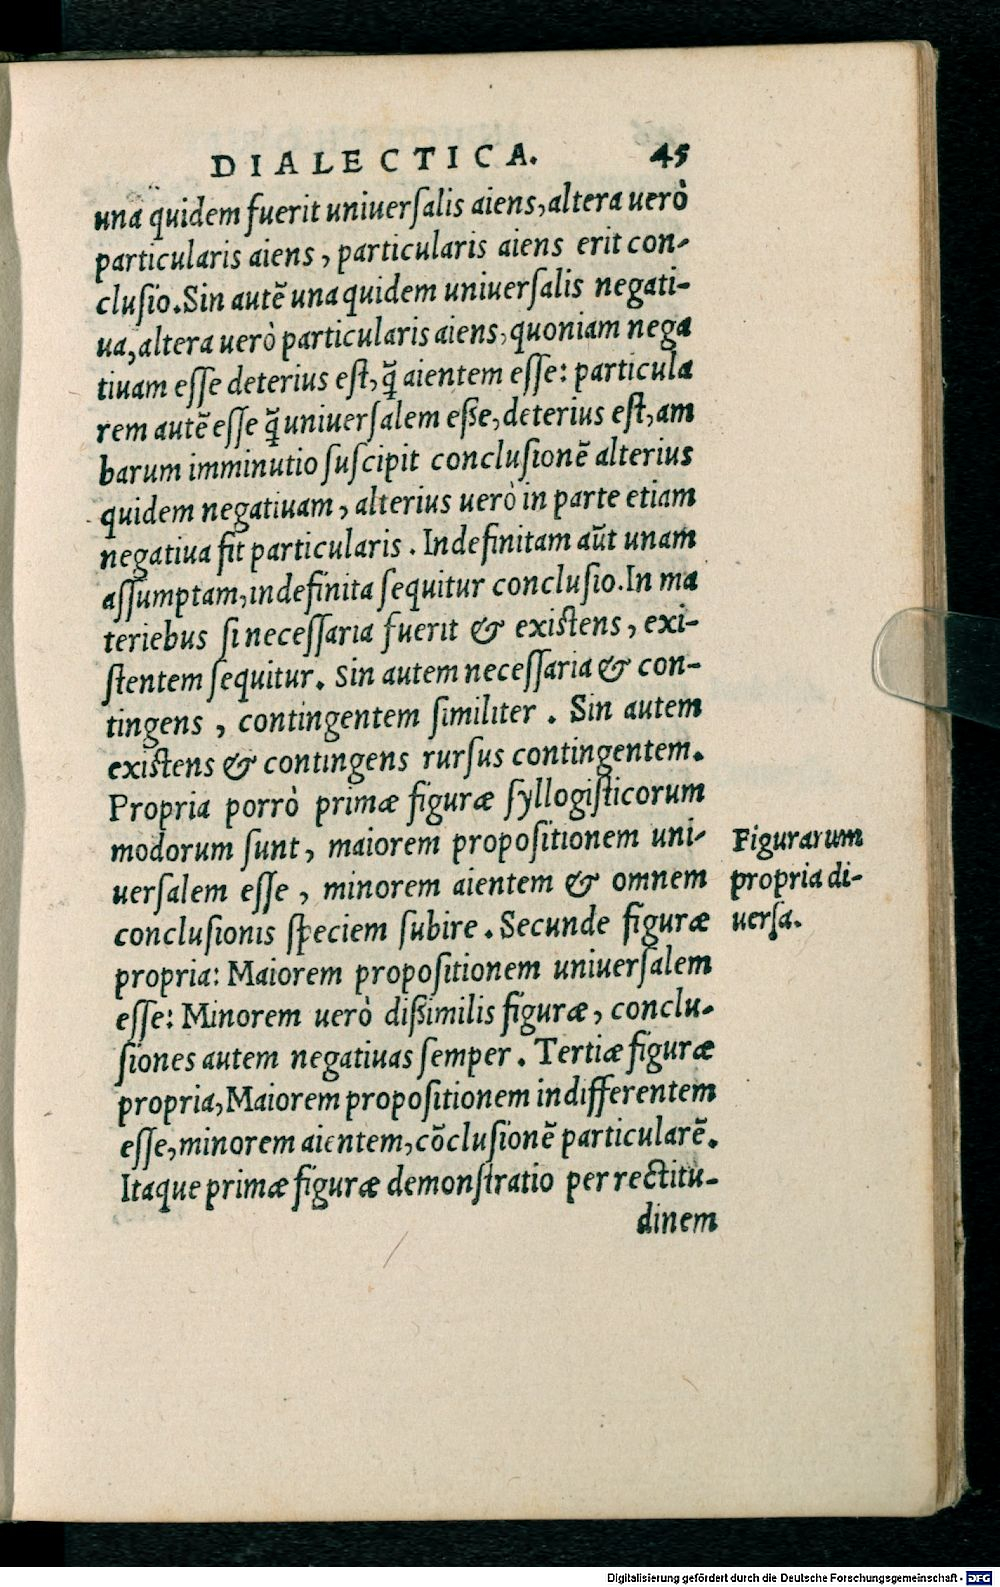 DIALECTICA. 45
una quidem fuerit uniuersalis aiens, altera uerò
particularis aiens, particularis aiens erit con-
clusio. Sin autẽ una quidem uniuersalis negati-
ua, altera uerò particularis aiens, quoniam nega
tiuam esse deterius est, q̃ aientem esse: particula
rem autẽ esse q̃ uniuersalem esse, deterius est, am
barum imminutio suscipit conclusionẽ alterius
quidem negatiuam, alterius uerò in parte etiam
negatiua fit particularis. Indefinitam aũt unam
assumptam, indefinita sequitur conclusio. In ma
teriebus si necessaria fuerit & existens, exi-
stentem sequitur. Sin autem necessaria & con-
tingens, contingentem similiter. Sin autem
existens & contingens rursus contingentem.
Propria porrò primæ figuræ syllogisticorum
modorum sunt, maiorem propositionem uni-
uersalem esse, minorem aientem & omnem
conclusionis speciem subire. Secunde figuræ
propria: Maiorem propositionem uniuersalem
esse: Minorem uerò dißimilis figuræ, conclu-
siones autem negatiuas semper. Tertiæ figuræ
propria, Maiorem propositionem indifferentem
esse, minorem aientem, cõclusionẽ particularẽ.
Itaque primæ figuræ demonstratio per rectitu-
dinem
Figurarum
propria di-
uersa.
Digitalisierung gefördert durch die Deutsche Forschungsgemeinschaft - DFG